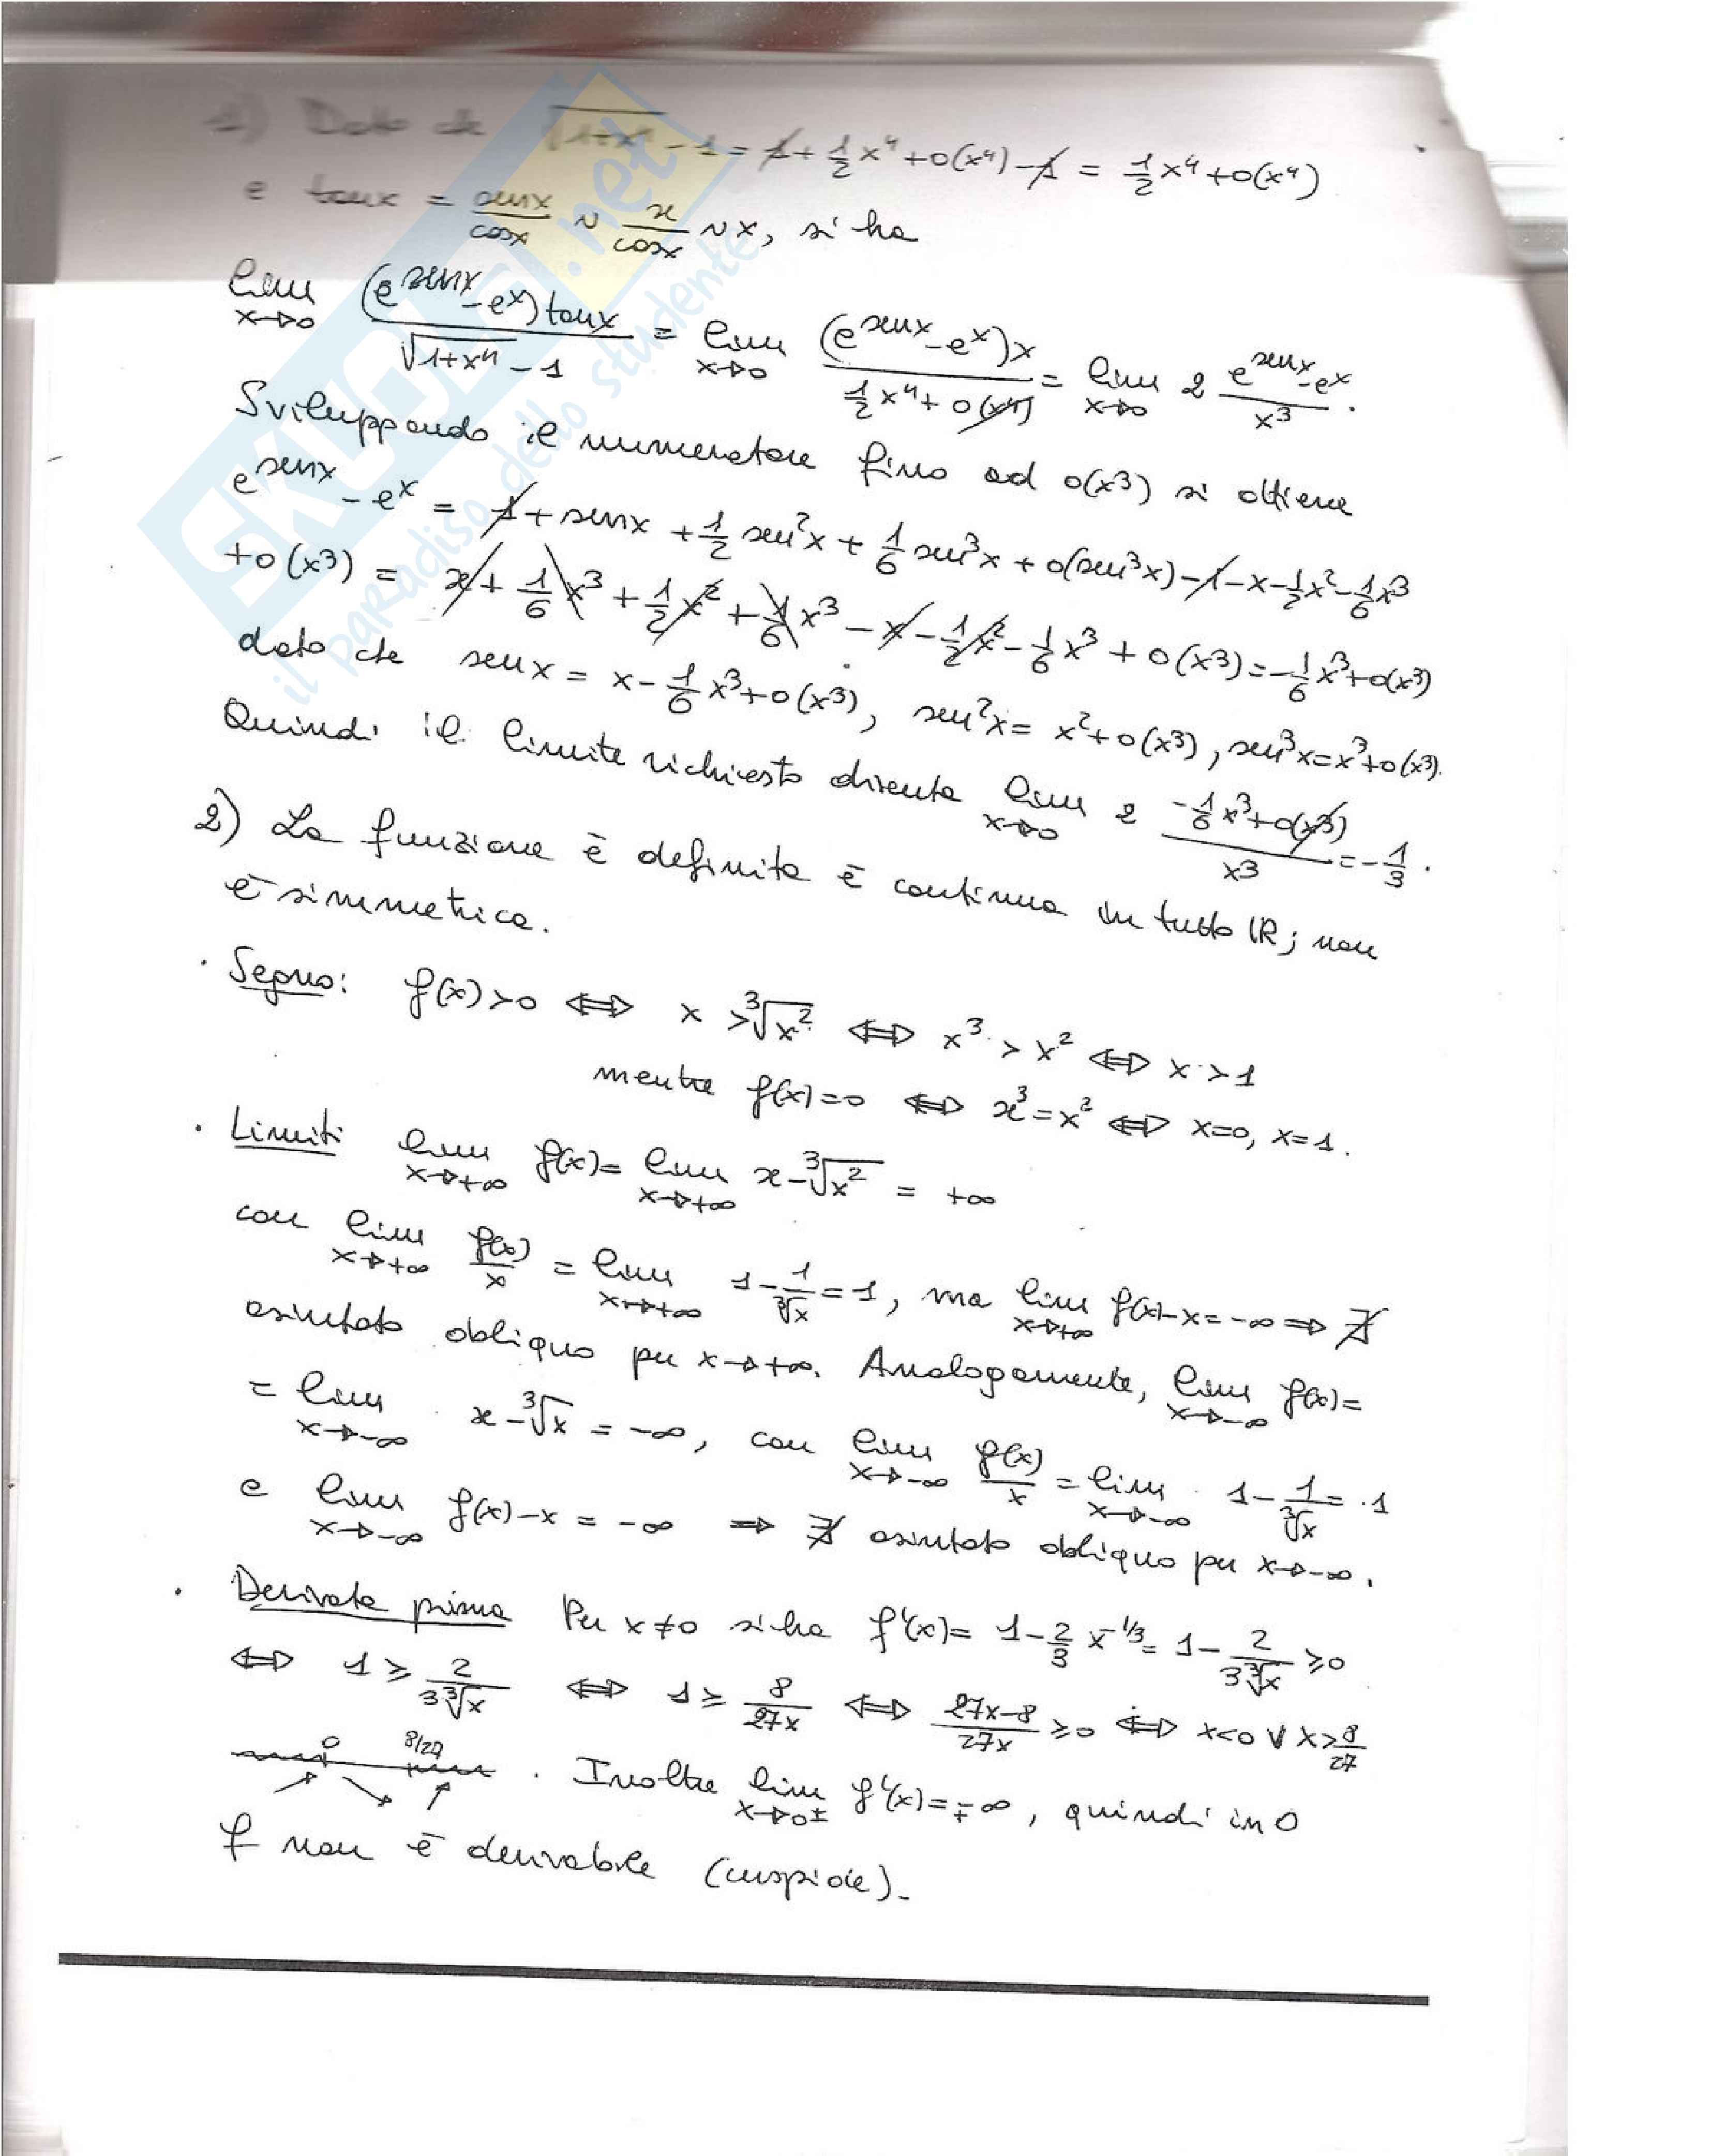 1) Dato che √1+x⁴ - 1 = 1 + 1/2 x⁴ + o(x⁴) - 1 = 1/2 x⁴ + o(x⁴)
e tanx = senx/cosx ~ x/cosx ~ x, si ha
lim x→0 (e^senx - e^x) tanx / √1+x⁴ - 1 = lim x→0 (e^senx - e^x) x / 1/2 x⁴ + o(x⁴) = lim x→0 2 e^senx - e^x / x³ .
Sviluppando il numeratore fino ad o(x³) si ottiene
e^senx - e^x = 1 + senx + 1/2 sen²x + 1/6 sen³x + o(sen³x) - 1 - x - 1/2 x² - 1/6 x³
+ o(x³) = x + 1/6 x³ + 1/2 x² + 1/6 x³ - x - 1/2 x² - 1/6 x³ + o(x³) = - 1/6 x³ + o(x³)
dato che senx = x - 1/6 x³ + o(x³), sen²x = x² + o(x³), sen³x = x³ + o(x³).
Quindi il limite richiesto diventa lim x→0 2 - 1/6 x³ + o(x³) / x³ = - 1/3 .
2) La funzione è definita è continua in tutto ℝ; non
è simmetrica.
· Segno: f(x) > 0 ⟺ x > ∛x² ⟺ x³ > x² ⟺ x > 1
mentre f(x) = 0 ⟺ x³ = x² ⟺ x=0, x=1.
· Limiti lim x→+∞ f(x) = lim x→+∞ x - ∛x² = +∞
con lim x→+∞ f(x)/x = lim x→+∞ 1 - 1/∛x = 1, ma lim x→+∞ f(x) - x = -∞ ⟹ ∄
asintoto obliquo per x→+∞. Analogamente, lim x→-∞ f(x) =
= lim x→-∞ x - ∛x = -∞, con lim x→-∞ f(x)/x = lim x→-∞ 1 - 1/∛x = 1
e lim x→-∞ f(x) - x = -∞ ⟹ ∄ asintoto obliquo per x→-∞.
· Derivata prima Per x≠0 si ha f'(x) = 1 - 2/3 x^-1/3 = 1 - 2/3∛x ≥ 0
⟺ 1 ≥ 2/3∛x ⟺ 1 ≥ 8/27x ⟺ 27x-8/27x ≥ 0 ⟺ x<0 ∨ x > 8/27
0 8/27 . Inoltre lim x→0± f'(x) = ∓∞, quindi in 0
f non è derivabile (cuspide).
SKUOLA.net
il paradiso dello studente